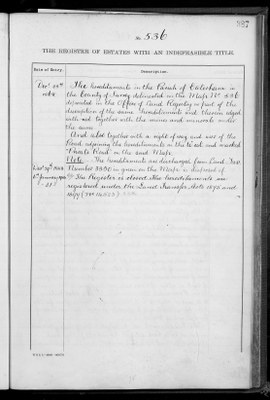 No. 536
THE REGISTER OF ESTATES WITH AN INDEFEASIBLE TITLE.
Date of Entry. Description.
The hereditaments in the Parish of Caterham in
the County of Surrey delineated in the Map No. 536
deposited in the Office of Land Registry as part of the
description of the same hereditaments and therein edged
with red together with the mines and minerals under
the same
And also together with a right of way and use of the
Road adjoining the hereditaments on the and marked
"Private Road" on the said Map.
Note The hereditaments are discharged from Land
Number in green on the Map is
The Register is closed the hereditaments
registered under the Land Transfer Acts 1875 and
1897